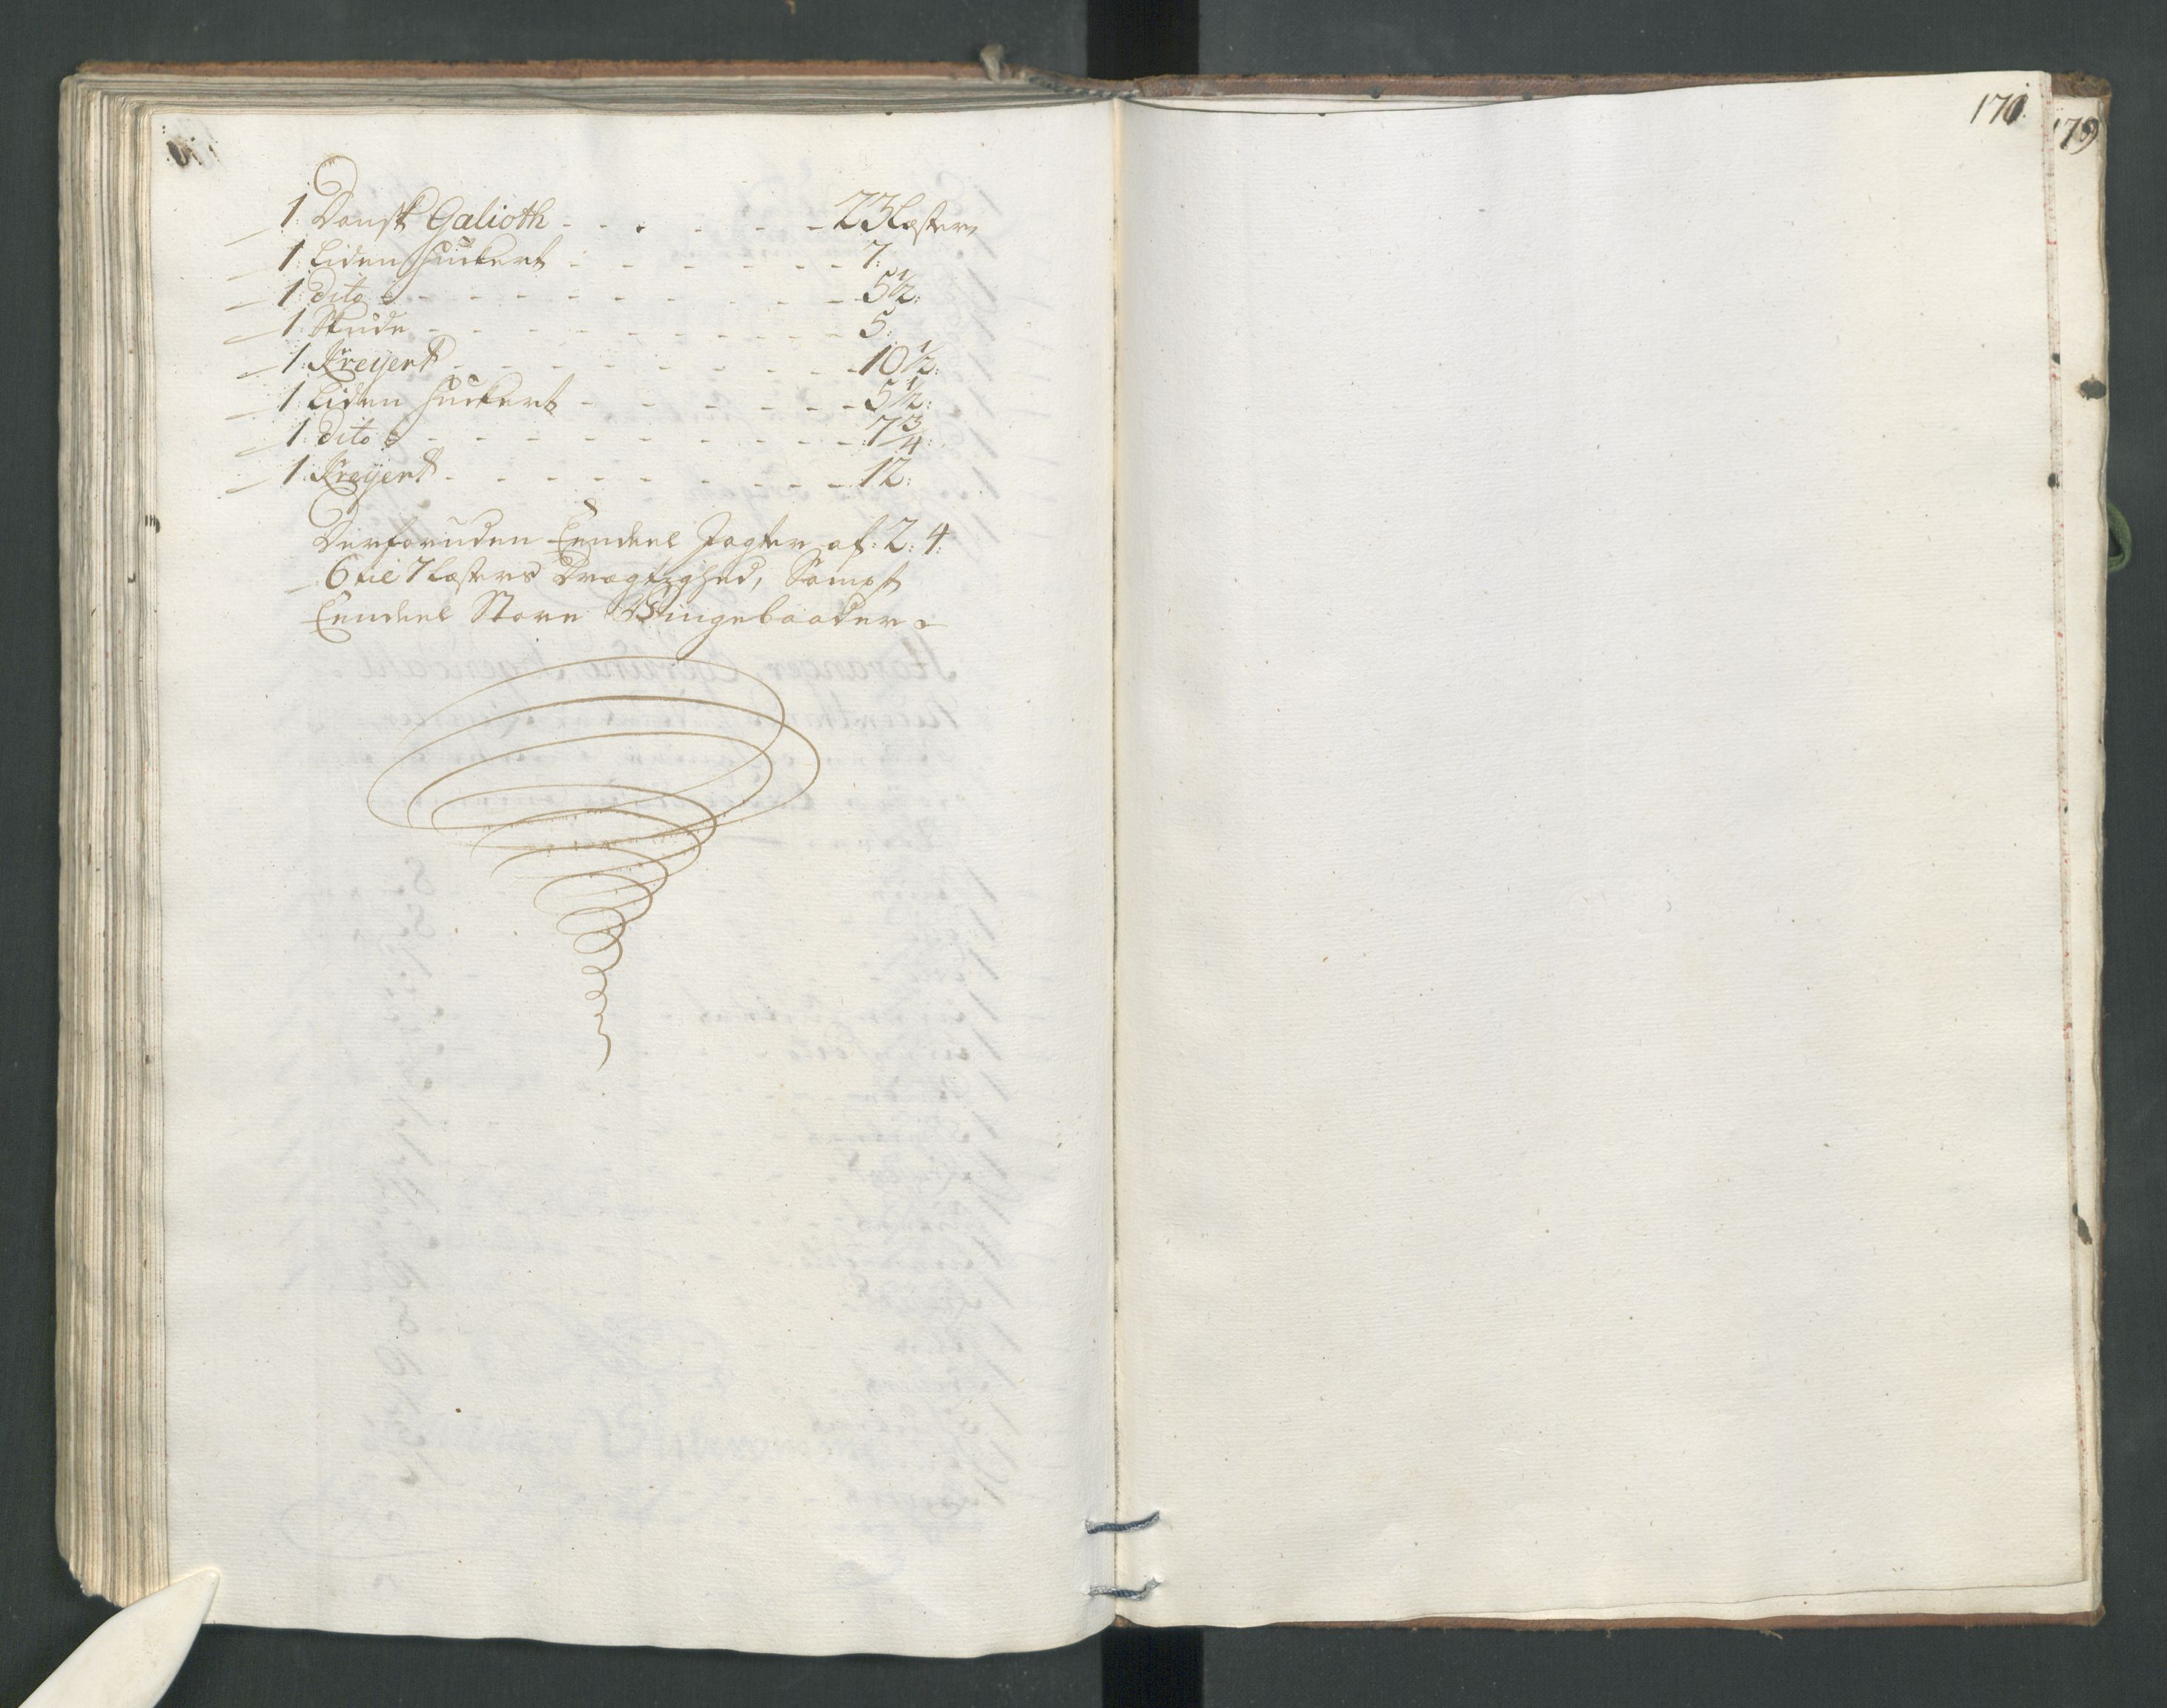 1: Dansk Galioth - - - - - - 23 Læster,
1: Liden Huckert - - - - - - 7:
1: dito - - - - - - - - - 5 1/2:
1: Skude - - - - - - - - - 5:
1: Kreyert - - - - - - - - - 10 1/2:
1: Liden Huckert - - - - - - 5 1/2:
1: dito - - - - - - - - - 7 3/4:
1: Kreyert - - - - - - - - - 12:
Derforuden Eendeel Jagter af: 2: 4:
6 til 7 Læsters Drægtighed, Sampt
Eendeel Store Bingebaader
170
179